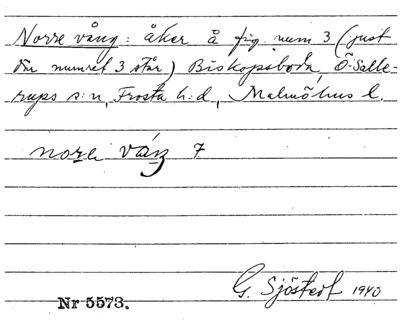 Norre vång: åker å fig. num 3 (just
där numret 3 står) Biskopsboda, Ö-Salle-
rups s:n, Frosta h:d, Malmöhus l.
nore
Nr 5573.
G. Sjöstedt 1940